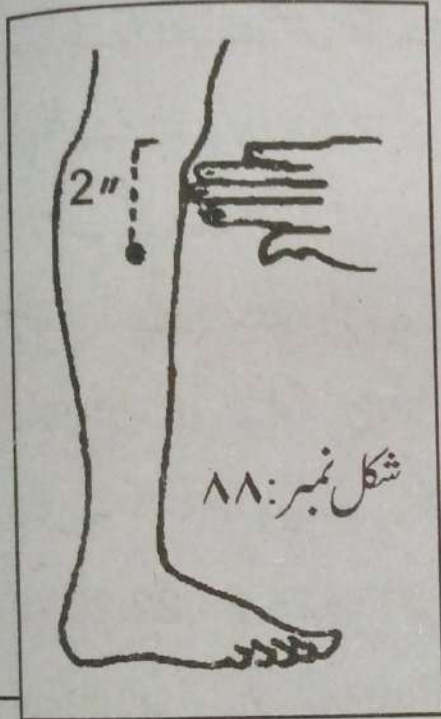 2"
شکل نمبر: ۸۸